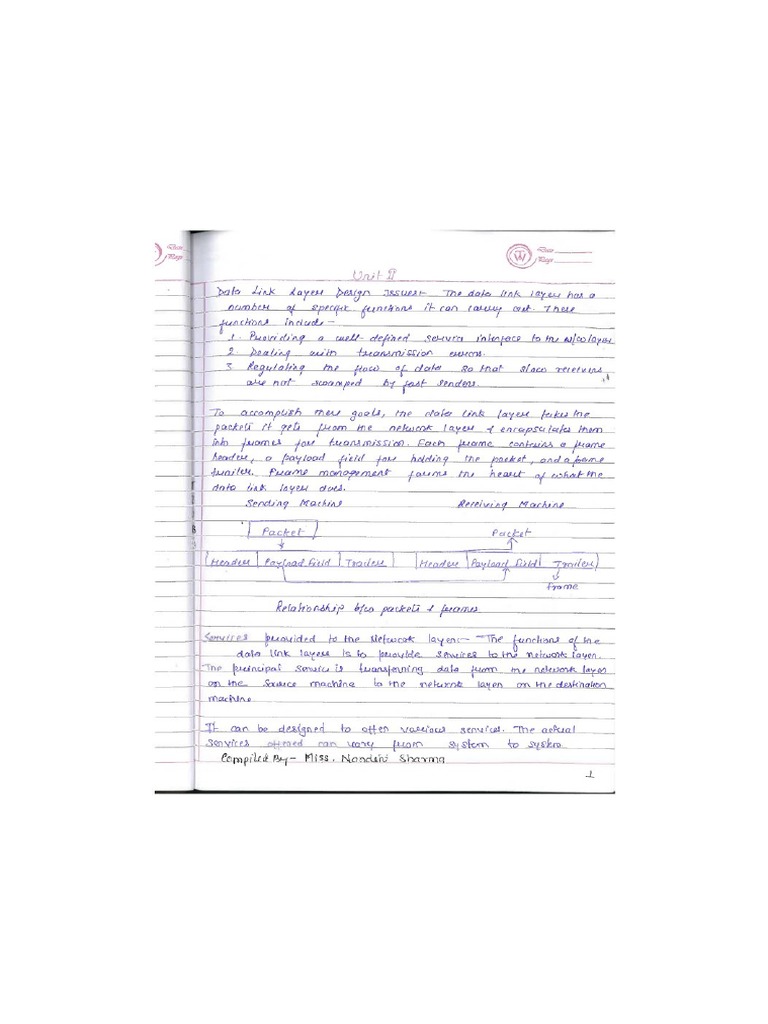 Date
Page
Date
Page
Unit II
Data Link Layer Design Issues:- The data link layer has a
number of specific functions it can carry out. These
functions include:-
1. Providing a well-defined service interface to the n/w layer
2. Dealing with transmission errors.
3. Regulating the flow of data so that slow receivers
are not swamped by fast senders.
To accomplish these goals, the data link layer takes the
packets it gets from the network layer & encapsulates them
into frames for transmission. Each frame contains a frame
header, a payload field for holding the packet, and a frame
trailer. Frame management forms the heart of what the
data link layer does.
Sending Machine Receiving Machine
Packet Packet
Header Payload Field Trailer Header Payload Field Trailer
Frame
Relationship b/w packets & frames
Services provided to the Network layer:- The functions of the
data link layer is to provide services to the network layer.
The principal service is transferring data from the network layer
on the source machine to the network layer on the destination
machine
It can be designed to offer various services. The actual
services offered can vary from system to system
Compiled By- Miss. Nandini Sharma
1